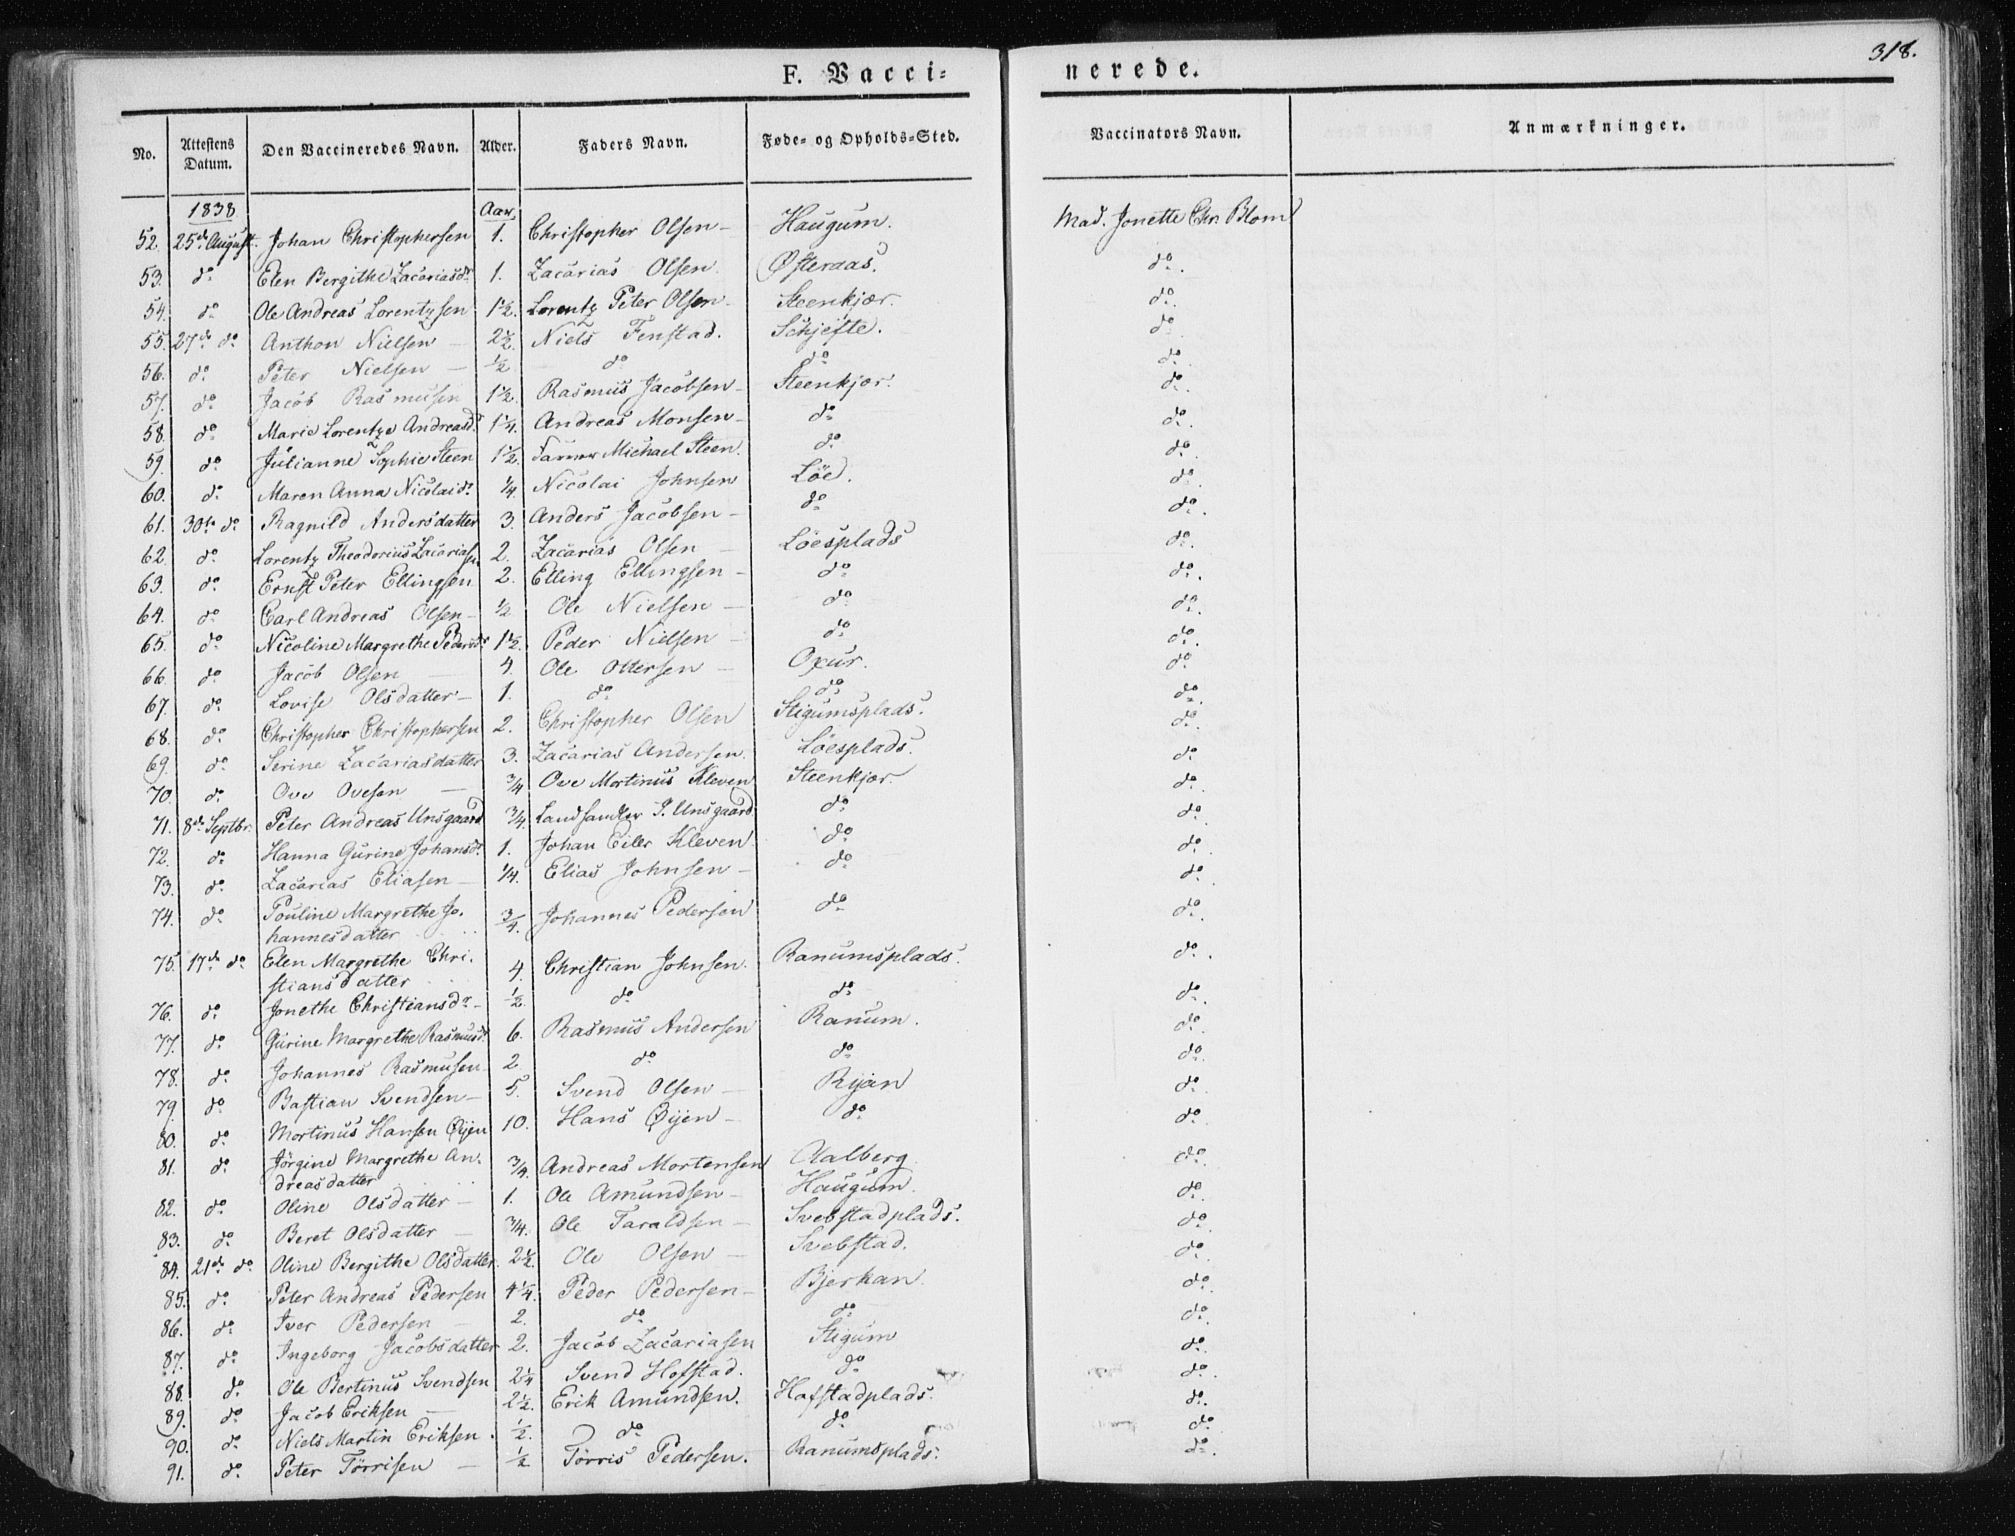 318.
F. Vacci= nerede.
No. Attestens Datum. Den Vaccineredes Navn. Alder. Faders Navn. Føde- og Opholds-Sted. Vaccinators Navn. Anmærkninger.
1838 Aar,
52. 25de August. Johan Christophersen 1. Christopher Olsen - Haugum. Mad. Jonette Chr. Blom
53. do Elen Bergithe Zacariasdr 1. Zacarias Olsen Østeraas. do.
54. do Ole Andreas Lorentzsen 1½. Lorentz Peter Olsen - Steenkjær. do.
55. 27de do Anthon Nielsen - 2½. Niels Fenstad. Schjefte. do.
56. do Peter Nielsen - ½ do do do.
57. do Jacob Rasmusen 1½. Rasmus Jacobsen - Steenkjær. do.
58. do Marie Lorentze Andreasdr 1¼. Andreas Monsen - do do.
59. do Julianne Sophie Steen 1½. Michael Steen. do do.
60. do Maren Anna Nicolaidr ¼. Nicolai Johnsen Löe. do.
61. 30te do Ragnild Andersdatter 3. Anders Jacobsen - do do.
62. do Lorentz Theodorius Zacariasn 2. Zacarias Olsen - Löesplads do.
63. do Ernst Peter Ellingsen 2. Elling Ellingsen - do do.
64. do Carl Andreas Olsen - ½ Ole Nielsen - do do.
65. do Nicoline Margrethe Pedersdr 1½. Peder Nielsen - do do.
66. do Jacob Olsen - 4. Ole Ottersen - Oxur. do
67. do Lovise Olsdatter - 1. do do do.
68. do Christopher Christophersen 2. Christopher Olsen Stigumsplads. do.
69. do Serine Zacariasdatter 3. Zacarias Andersen. Löesplads. do
70. do Ove Ovesen - ¾ Ove Mortinus Kleven Steenkjær do.
71. 8de Septbr. Peter Andreas Unsgaard ¾. Landhandler P. Unsgaard do do.
72. do Hanna Gurine Johansdr. 1. Johan Eiler Kleven do do.
73. do Zacarias Eliasen - ¼. Elias Johnsen - do do.
74. do Pouline Margrethe Jo.
hannesdatter ¾. Johannes Pedersen do do.
75. 17de do Elen Margrethe Chri.
stiansdatter 4. Christian Johnsen. Ranumsplads. do.
76. do Jonethe Christiansdr - ½. do do do.
77. do Gurine Margrethe Rasmusdr 6. Rasmus Andersen Ranum. do.
78. do Johannes Rasmusen 2. do do do.
79. do Bastian Svendsen - 5. Svend Olsen - Ryan do.
80. do Mortinus Hansen Øyen 10. Hans Øyen - do do.
81. do Jörgine Margrethe An.
dreasdatter ¾. Andreas Mortensen Aalberg do.
82. do Oline Olsdatter - 1. Ole Amundsen - Haugum. do.
83. do Beret Olsdatter - ¾. Ole Taraldsen - Svebstadplads. do.
84. 21de do Oline Bergithe Olsdatter. 2½. Ole Olsen - Svebstad. do.
85. do Peter Andreas Pedersen 4¼. Peder Pedersen - Bjerkan do.
86. do Iver Pedersen - 2. do do do.
87. do Ingeborg Jacobsdatter 2. Jacob Zacariasen Stigum do.
88. do Ole Bertinus Svendsen 2¼ Svend Hofstad. do do.
89. do Jacob Eriksen - 2½. Erik Amundsen. Hofstadplads. do.
90. do Niels Martin Eriksen. ½. do do do.
91. do Peter Törrisen - ½ Törris Pedersen. Ranumsplads. do.